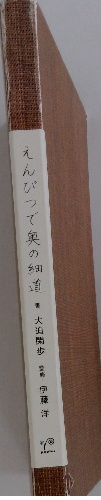 えんぴつで奥の細道 書 大迫閑歩 監修 伊藤洋